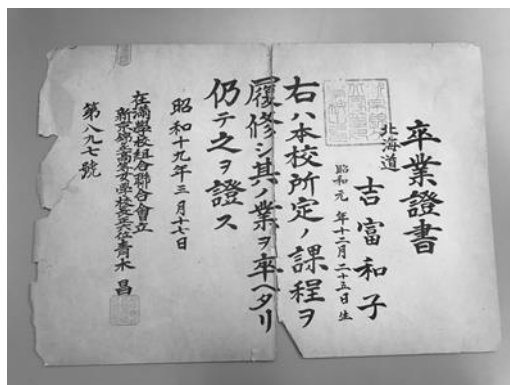 卒業證書
北海道
吉富和子
昭和元年十二月二十五日生
右ハ本校所定ノ課程ヲ
履修シ其ノ業ヲ卒ヘタリ
仍テ之ヲ證ス
昭和十九年三月十七日
在滿學校組合聯合會立
新京錦丘高等女學校長正六位青木昌
第八九七號